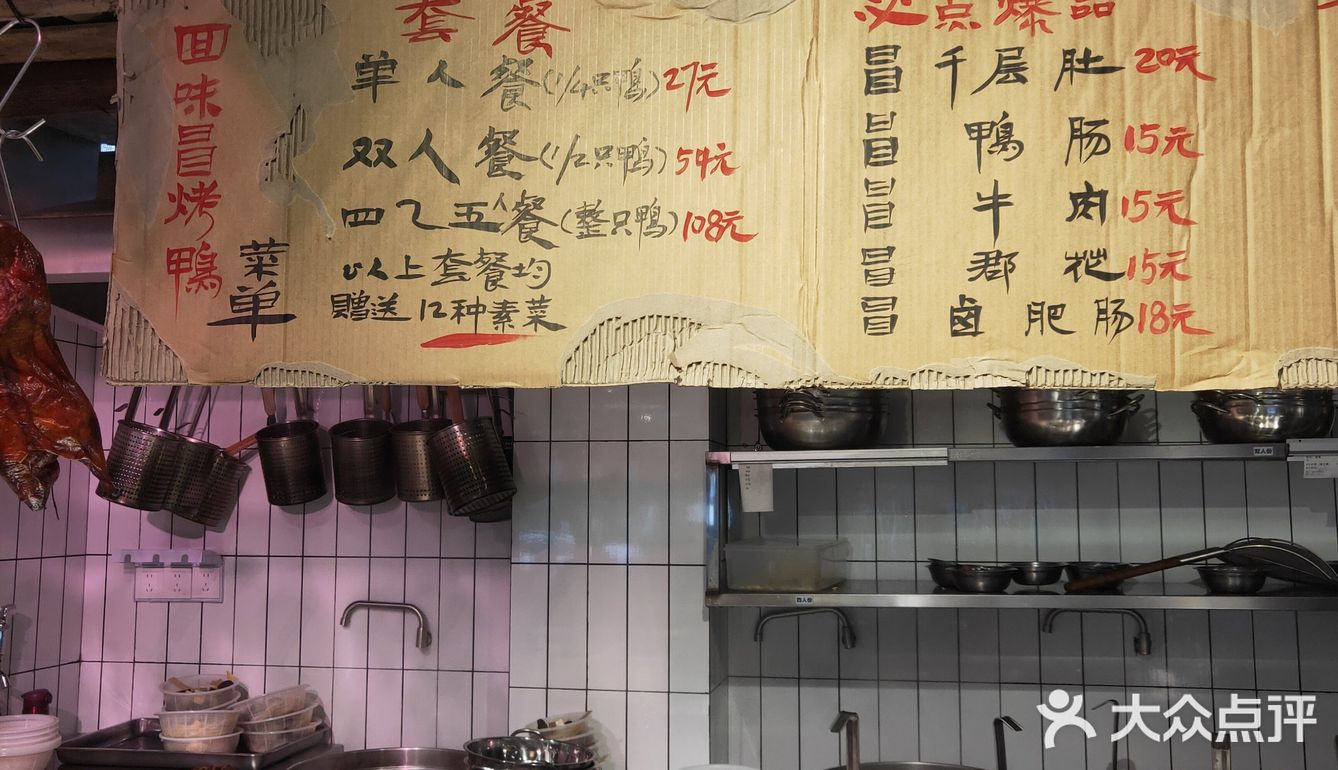 回味冒烤鸭
菜单
套餐
单人餐(1/4只鸭)27元
双人餐(1/2只鸭)54元
四乙五人餐(整只鸭)108元
以上套餐均
赠送12种素菜
必点爆品
冒千层肚20元
冒鸭肠15元
冒牛肉15元
冒郡花15元
冒卤肥肠18元
双人份
四人份
大众点评